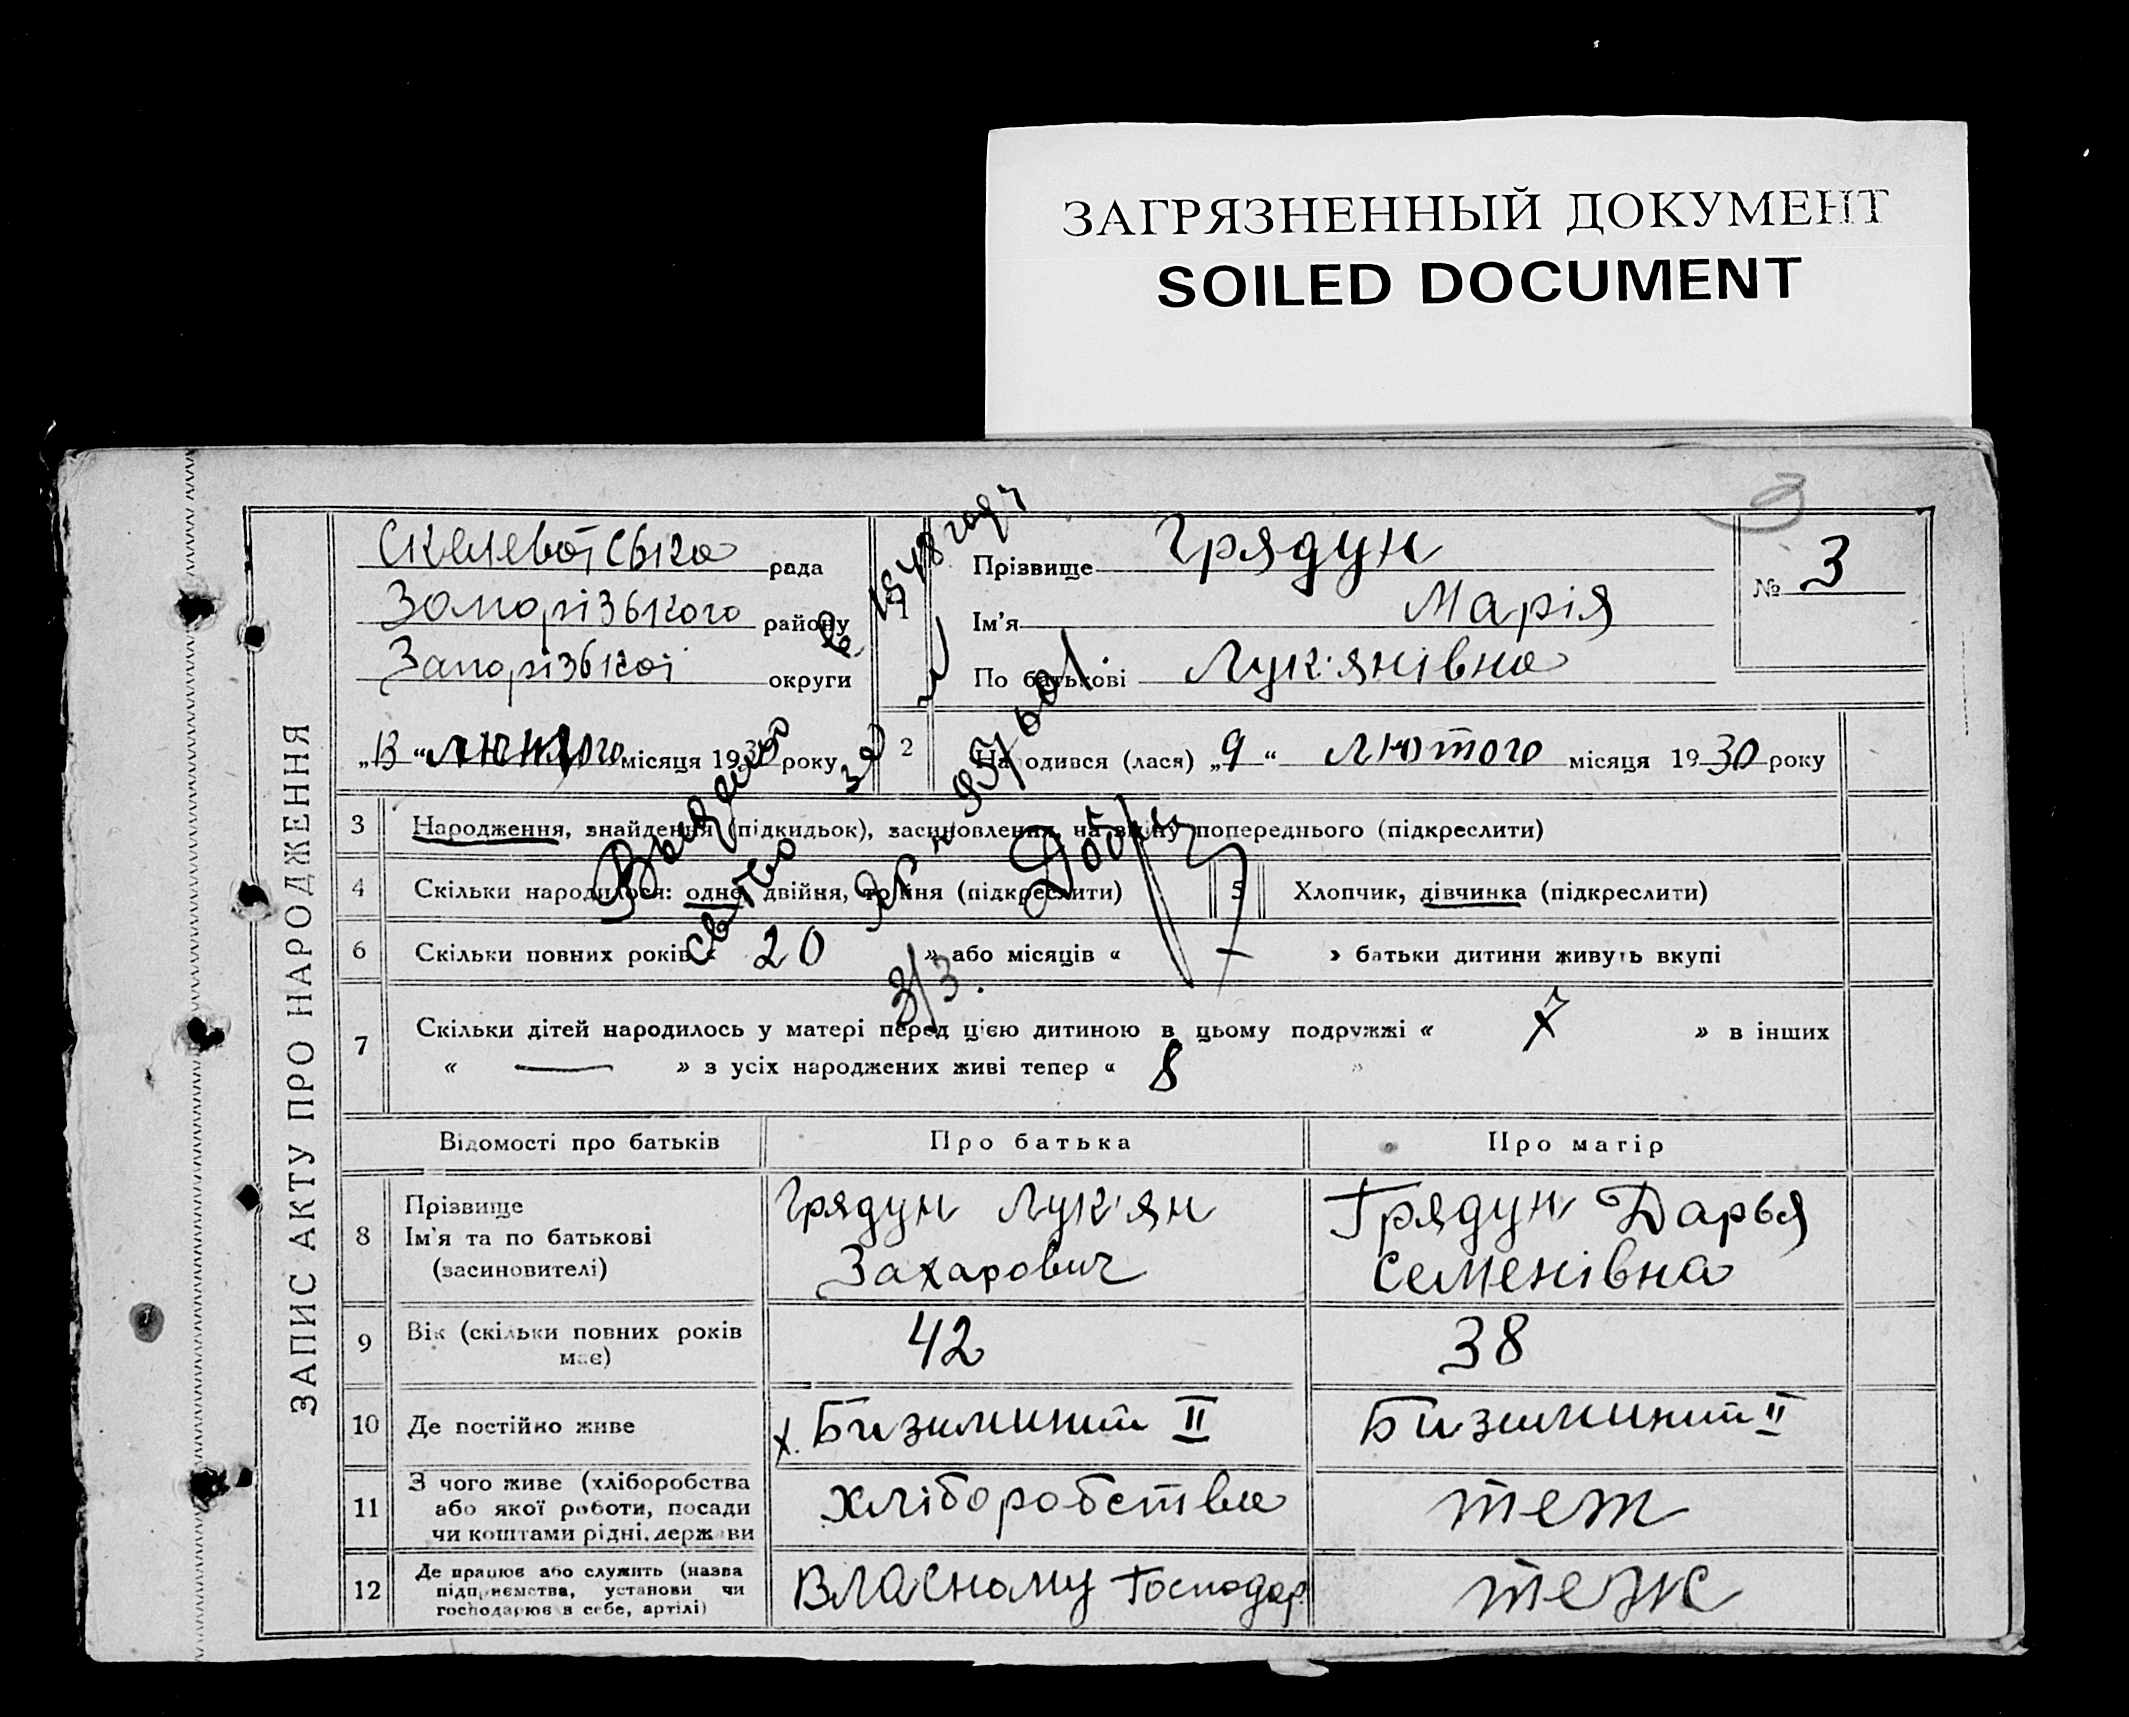 ЗАГРЯЗНЕННЫЙ ДОКУМЕНТ
SOILED DOCUMENT
3
ЗАПИС АКТУ ПРО НАРОДЖЕННЯ
Скелеватська рада
Запорізького району
Запорізької округи
„13“ лютого місяця 1930 року
1
Прізвище Грядун
Ім'я Марія
По батькові Лук'янівна
№ 3
2 Народився (лася) „9“ лютого місяця 1930 року
3 Народження, знайдення (підкидьок), засиновлення, на зміну попереднього (підкреслити)
4 Скільки народилося: одне, двійня, трійня (підкреслити) 5 Хлопчик, дівчинка (підкреслити)
6 Скільки повних років « 20 » або місяців « — » батьки дитини живуть вкупі
7 Скільки дітей народилось у матері перед цією дитиною в цьому подружжі « 7 » в інших
« — » з усіх народжених живі тепер « 8 »
в 1948 году
Выдано
свид-во за
3/3.
Відомості про батьків Про батька Про матір
8 Прізвище
Ім'я та по батькові
(засиновителі)
Грядун Лук'ян
Захарович
Грядун Дарья
Семенівна
9 Вік (скільки повних років
має)
42 38
10 Де постійно живе
х. Бизиминит II Бизиминит II
11 З чого живе (хліборобства
або якої роботи, посади
чи коштами рідні, держави
хліборобства теж
12 Де працює або служить (назва
підприємства, установи чи
господарює в себе, артілі)
Власному Господар. теж